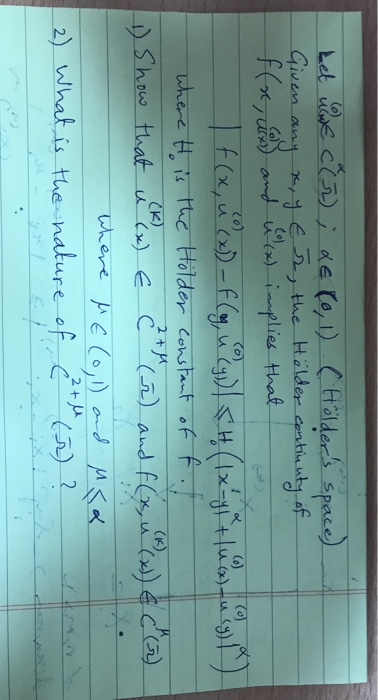 Let u⁽⁰⁾(x) ∈ C^α(Ω̄); α ∈ (0,1). (Hölder's space)
Given any x, y ∈ Ω̄, the Hölder continuity of
f(x, u⁽⁰⁾(x)) and u⁽⁰⁾(x) implies that
| f(x, u⁽⁰⁾(x)) - f(y, u⁽⁰⁾(y)) | ≤ H₀ ( |x-y|^α + |u⁽⁰⁾(x) - u⁽⁰⁾(y)|^α )
where H₀ is the Hölder constant of f.
1) Show that u⁽ᴷ⁾(x) ∈ C^{2+μ}(Ω̄) and f(x, u⁽ᴷ⁾(x)) ∈ C^μ(Ω̄)
where μ ∈ (0,1) and μ ≤ α.
2) What is the nature of C^{2+μ}(Ω̄)?